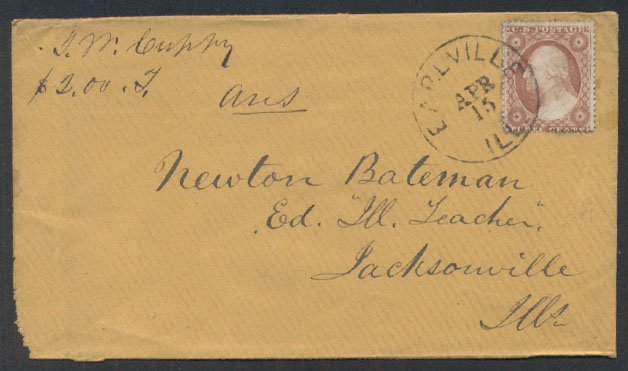 J. W. Cuppy
$2.00. T.
Ans
EARLVILLE
APR
15
ILL
U.S. POSTAGE
THREE CENTS
Newton Bateman
Ed. "Ill. Teacher",
Jacksonville
Ills.